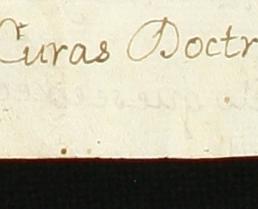 Curas Doctr